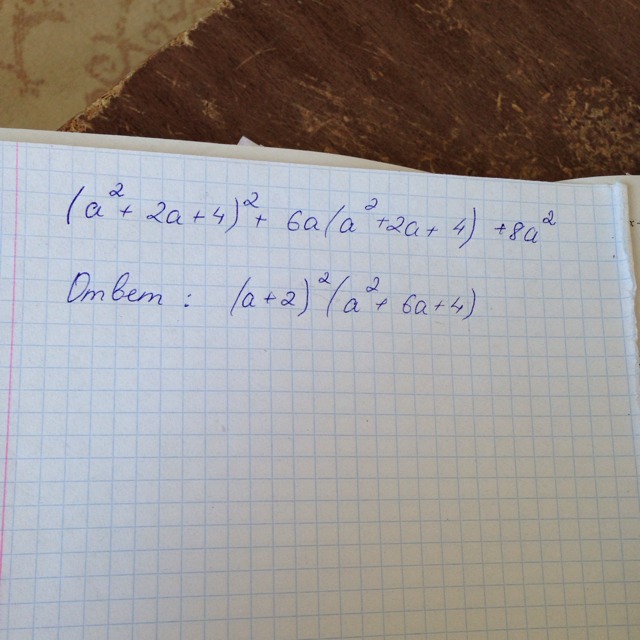 (a² + 2a + 4)² + 6a(a² + 2a + 4) + 8a²
Ответ : (a + 2)²(a² + 6a + 4)